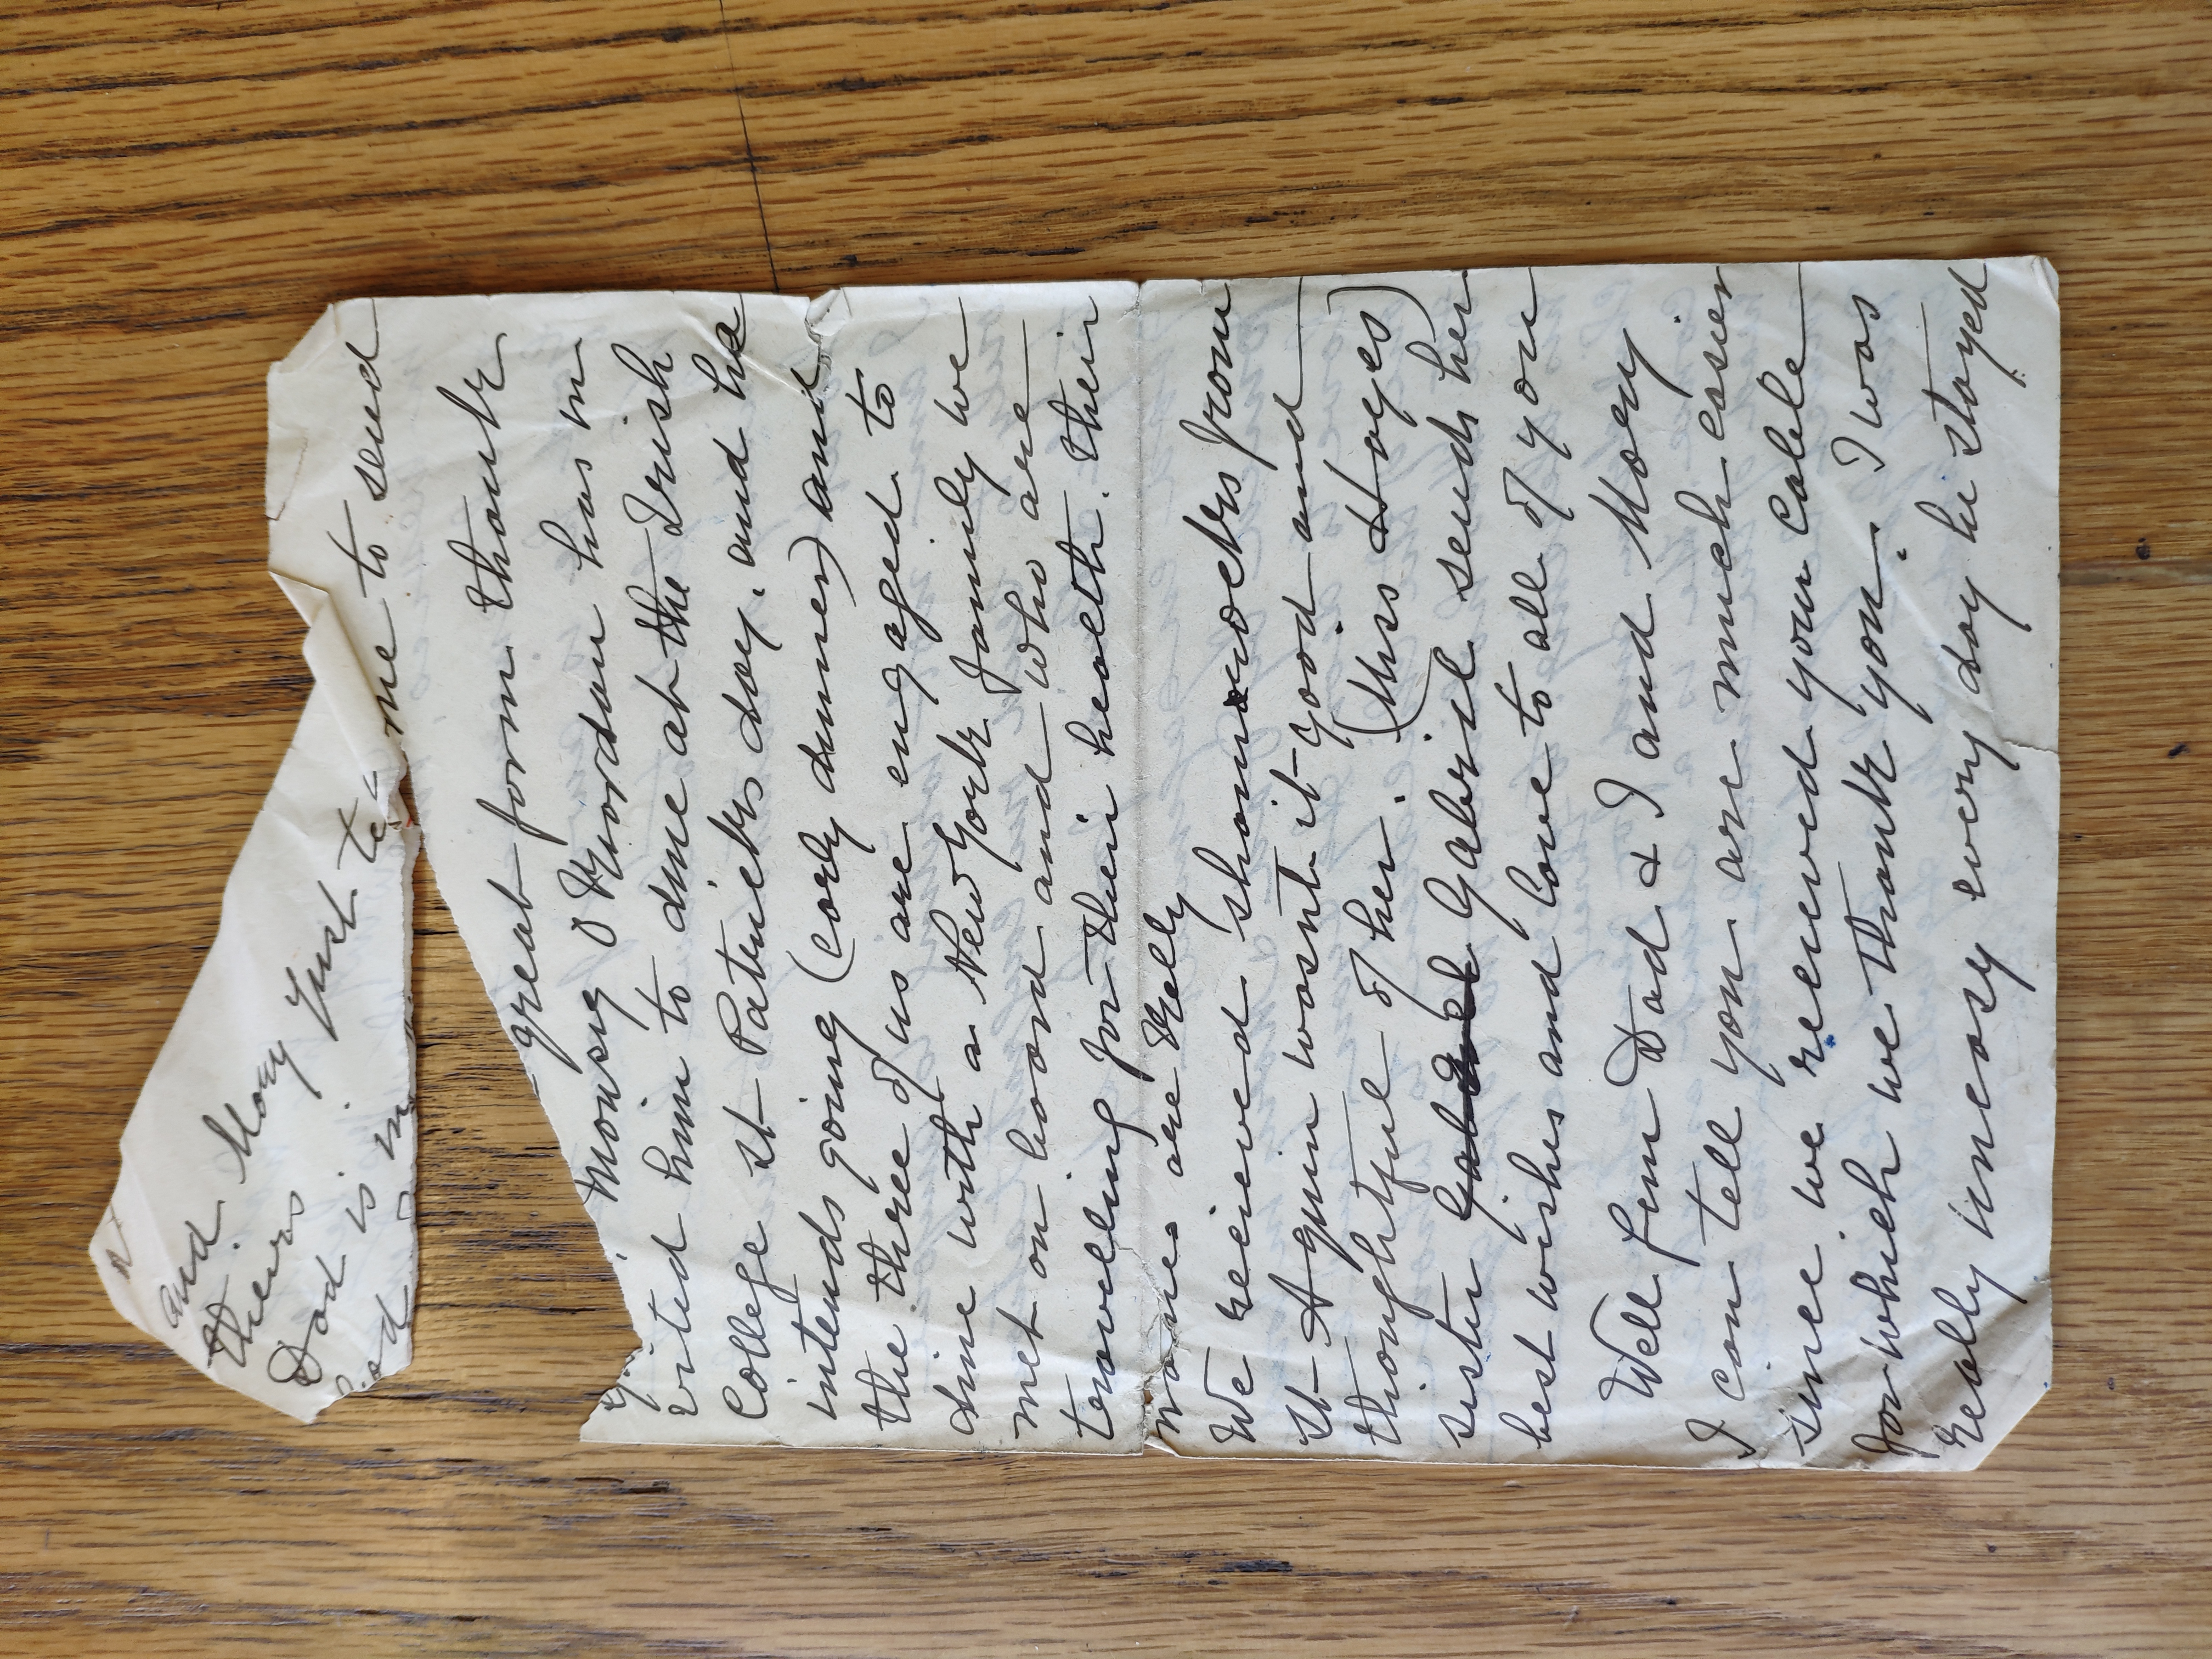 and Mary just te
me to send
theirs
Dad is in
great form thank
God
Monsig O Riordan has in
vited him to dine at the Irish
College St Patricks day. and he
intends going (early dinner) and
the three of us are engaged to
dine with a New York family we
met on board and who are
travelling for their health. their
name are Kelly
We received shamrocks from
St Agnin wasnt it good and
thoughtful of her. (Miss Hayes)
sister Gabriel sends her
best wishes and love to all of you
Well Finn Dad & I and Mary
I can tell you are much easier
since we received your cable
for which we thank you. I was
realy uneasy every day he stayed